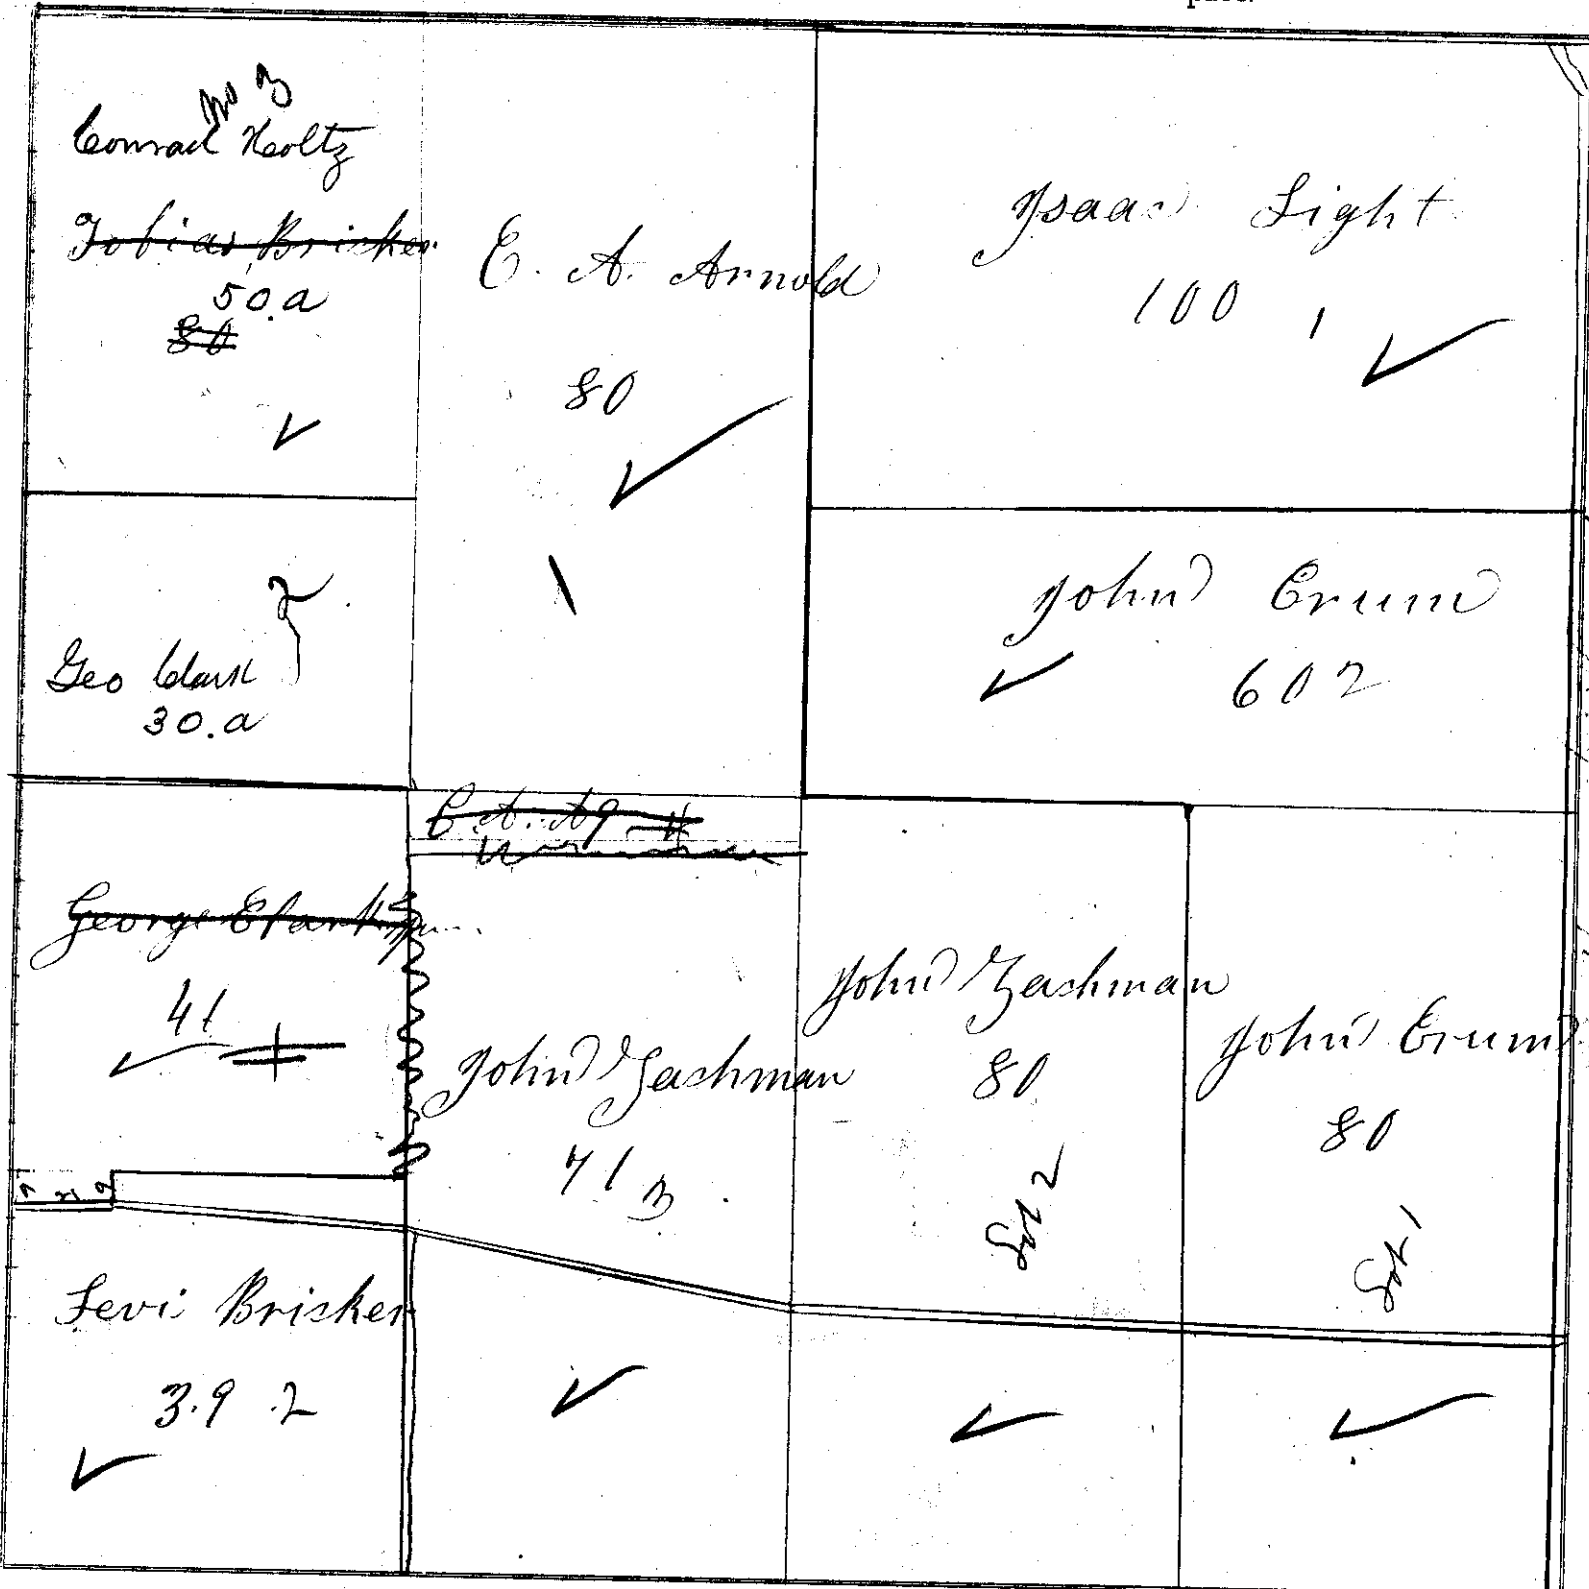 No 3
Conrad Holtz
Tobias Bricker
50.a
80
E. A. Arnold
80
Isaac Light
100 1
Geo Clark
30.a
2
John Crum
60 2
E. A. A 9
George Clark
41
John Zachman
71 3
John Zachman
80
Lot 2
John Crum
80
Lot 1
Levi Bricker
3.9 .2